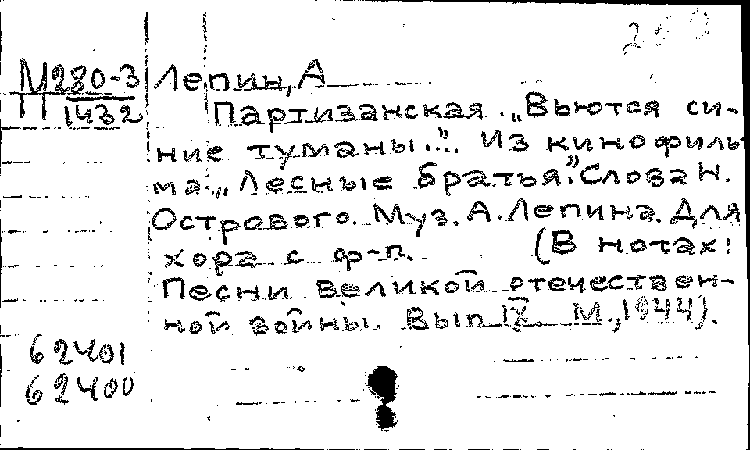 М280-3
1432
Лепин, А
Партизанская. „Вьются си-
ние туманы..". Из кинофиль
ма „Лесные братья". Слова Н.
Острового. Муз. А. Лепина. Для
хора с ф-п. (В нотах:
Песни великой отечествен-
ной войны. Вып IX. М., 1944).
62401
62400